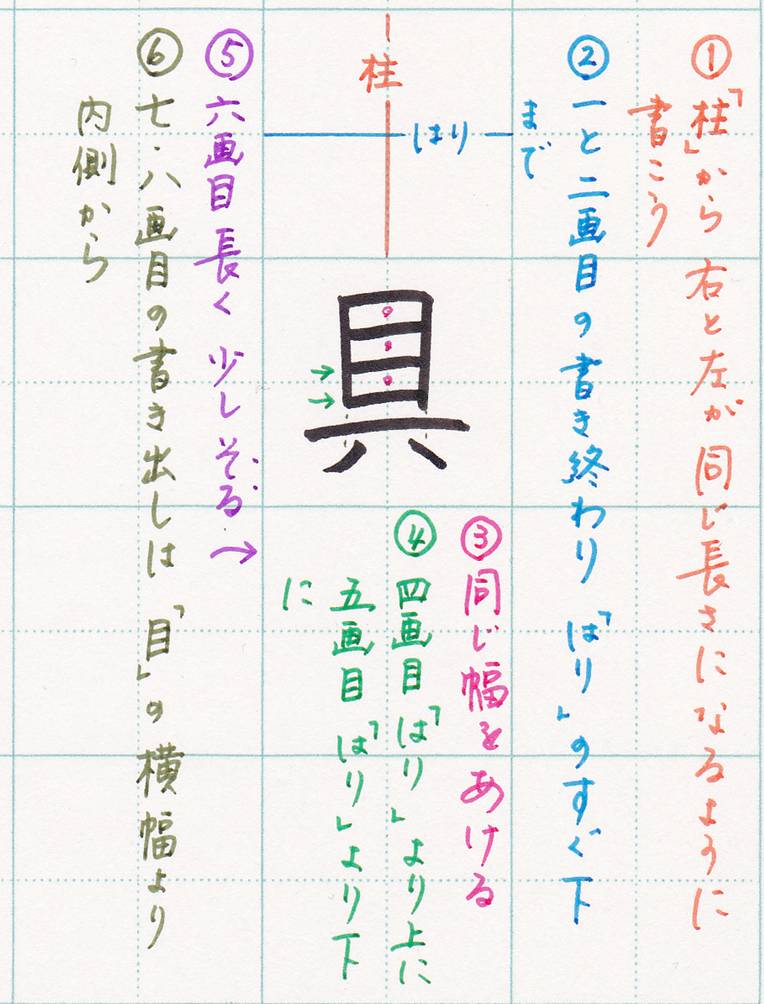 ①「柱」から 右と左が 同じ長さになるように
書こう
②一と二画目の書き終わり 「はり」のすぐ下
まで
柱
はり
具
③同じ幅をあける
④四画目「はり」より上に
五画目「はり」より下
に
⑤六画目 長く 少しそる→
⑥七・八画目の書き出しは 「目」の横幅より
内側から